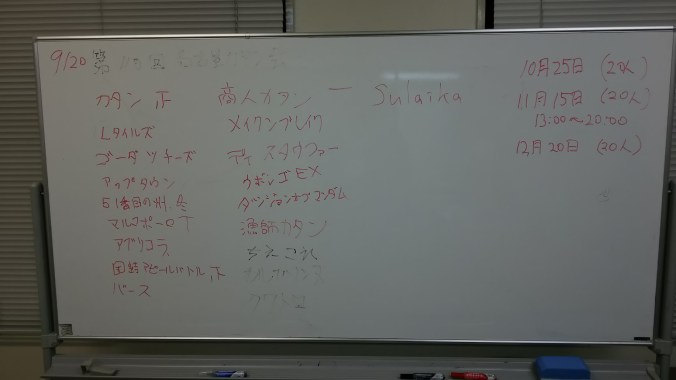 9/20 第
カタン 正
Lタイルズ
ゴーダ ツ チーズ
アップタウン
51番目の州
マルコポーロ T
アグリコラ
団結アピールバトル 下
バース
商人カタン 一
メイクンブレイク
ディスカヴァー
ウボンゴEX
ダンジョンオブマンダム
漁師カタン
Sulaika
10月25日 (20人)
11月15日 (20人)
13:00~20:00
12月20日 (20人)